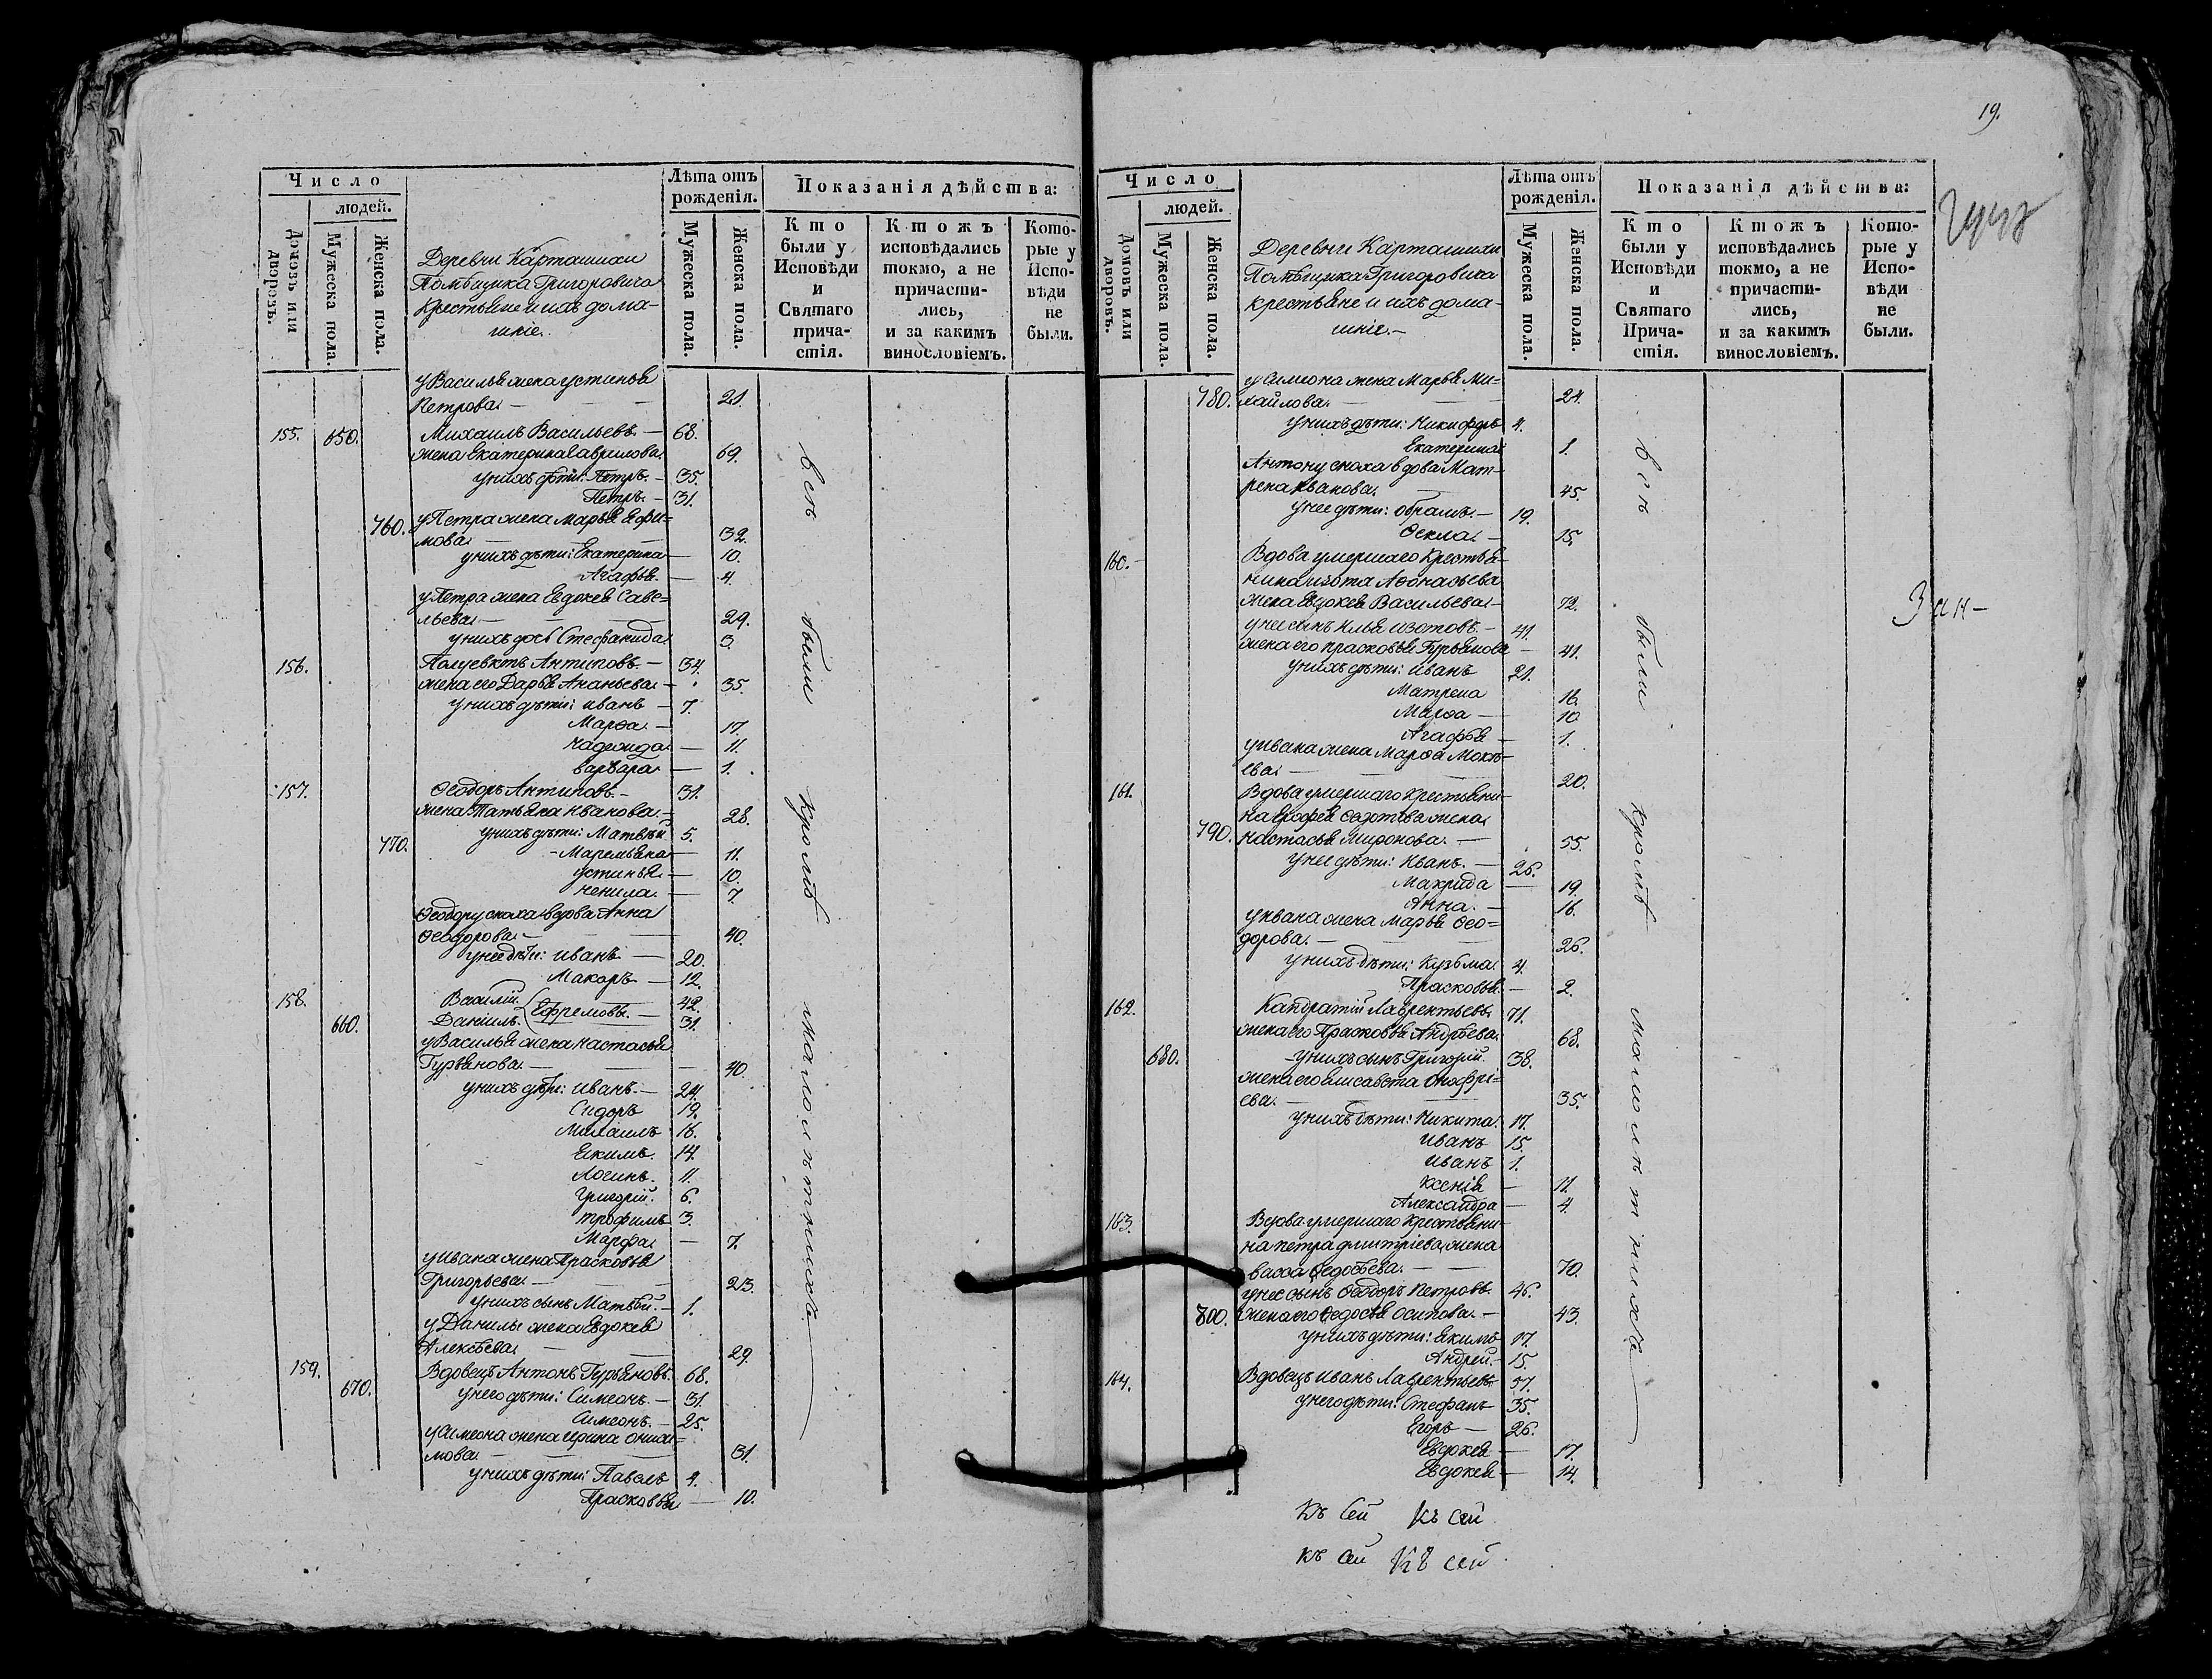 Число
людей.
Домовъ или дворовъ.
Мужеска пола.
Женска пола.
Деревни Карташихи
Помѣщика Григоровича
Крестьяне и ихъ дома-
шніе.
Лѣта отъ рожденія.
Мужеска пола.
Женска пола.
Показанія дѣйства:
Кто были у Исповѣди и Святаго причастія.
Ктожъ исповѣдались токмо, а не причастились, и за какимъ винословіемъ.
Которые у Исповѣди не были.
у Василья жена Устинья
Петрова. — 21.
155. 650. Михаилъ Васильевъ. — 68.
жена Екатерина Гаврилова 69.
у нихъ дѣти: Петръ. — 35.
Петръ. — 31.
760. у Петра жена Марья Ефи-
мова — 32.
у нихъ дѣти: Екатерина — 10.
Агафья. — 4.
у Петра жена Евдокея Саве-
льева — 29.
у нихъ дочь Стефанида 3.
156. Полуевктъ Антиповъ. — 34.
жена его Дарья Ананьева — 35.
у нихъ дѣти: Иванъ — 7.
Марѳа. — 17.
Надежда — 11.
Варвара — 1.
157. Ѳеодоръ Антиповъ. — 31.
жена Татьяна Иванова. — 28.
у нихъ дѣти: Матвѣй 5.
770. Маремьяна — 11.
Устинья — 10.
Ненила. — 7
Ѳеодору сноха вдова Анна
Ѳеодорова. — 40.
у нее дѣти: Иванъ — 20.
Макаръ — 12.
158. Василій. Ефремовы. — 42.
660. Даніилъ. 31.
у Василья жена Настасья
Гурьянова. — 40.
у нихъ дѣти: Иванъ. — 24.
Сидоръ 19.
Михаилъ 16.
Екимъ. 14.
Логинъ. 11.
Григорій. 6.
Трофимъ 3.
Марфа — 7.
у Ивана жена Прасковья
Григорьева. — 23.
у нихъ сынъ Матвѣй. — 1.
у Данилы жена Евдокея
Алексѣева — 29.
159. Вдовецъ Антонъ Гурьяновъ. 68.
670. у него дѣти: Симеонъ. — 31.
Симеонъ. — 25.
у Симеона жена Ирина Ониси-
мова — 31.
у нихъ дѣти: Павелъ 4.
Прасковья — 10.
всѣ были кромѣ малолѣтнихъ
19.
Число
людей.
Домовъ или дворовъ.
Мужеска пола.
Женска пола.
Деревни Карташихи
Помѣщика Григоровича
крестьяне и ихъ дома-
шніе. —
Лѣта отъ рожденія.
Мужеска пола.
Женска пола.
Показанія дѣйства:
Кто были у Исповѣди и Святаго Причастія.
Ктожъ исповѣдались токмо, а не причастились, и за какимъ винословіемъ.
Которые у Исповѣди не были.
у Симеона жена Марья Ми-
780. хайлова. — 24.
у нихъ дѣти: Никифоръ 4.
Екатерина 1.
Антону сноха вдова Мат-
рена Иванова. 45.
у нее дѣти: Обрамъ. — 19.
Ѳекла. — 15.
160. Вдова умершаго Крестья-
нина Изота Аѳонасьева
жена Евдокея Васильева — 72.
у нее сынъ Илья Изотовъ. — 41.
жена его Прасковья Гурьянова — 41.
у нихъ дѣти: Иванъ 21.
Матрена 16.
Марѳа — 10.
Агафья — 1.
у Ивана жена Марѳа Мокѣ-
ева — 20.
161. Вдова умершаго Крестьяни-
на жена
790. Настасья Миронова. — 55.
у нее дѣти: Иванъ. — 26.
Макрида — 19.
Анна. — 16.
у Ивана жена Марья Ѳео-
дорова. — 26.
у нихъ дѣти: Кузьма. 4.
Прасковья. — 2.
162. Кандратій Лаврентьевъ 71.
жена его Прасковья Андрѣева. 68.
680. у нихъ сынъ Григорій. 38.
жена его Елисавета Онофрі-
ева. — 35.
у нихъ дѣти: Никита. 17.
Иванъ 15.
Иванъ 1.
Ксенія — 11.
Александра — 4.
163. Вдова умершаго Крестьяни-
на Петра Дмитріева жена
Васса Ѳедотѣева. — 70.
у нее сынъ Ѳеодоръ Петровъ. 46.
800. жена его Ѳедосья Осипова. — 43.
у нихъ дѣти: Екимъ 17.
Андрей. — 15.
164. Вдовецъ Иванъ Лаврентьевъ 57.
у него дѣти: Стефанъ 35.
Егоръ — 26.
Евдокея — 17.
Евдокея — 14.
всѣ были кромѣ малолѣтнихъ
Зан-
Къ сей Къ сей
Къ сей Къ сей